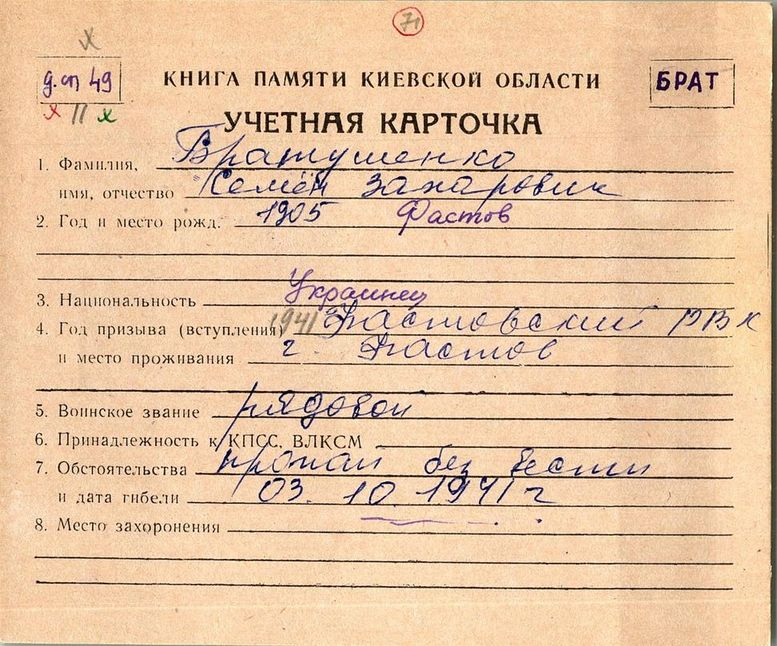 71
х
д.сп 49
х II х
КНИГА ПАМЯТИ КИЕВСКОЙ ОБЛАСТИ
БРАТ
УЧЕТНАЯ КАРТОЧКА
1. Фамилия, Братушенко
имя, отчество Семён Захарович
2. Год и место рожд. 1905 Фастов
3. Национальность Украинец
4. Год призыва (вступления) 1941 Фастовский РВК
и место проживания г. Фастов
5. Воинское звание рядовой
6. Принадлежность к КПСС, ВЛКСМ
7. Обстоятельства пропал без вести
и дата гибели 03. 10. 1941 г
8. Место захоронения